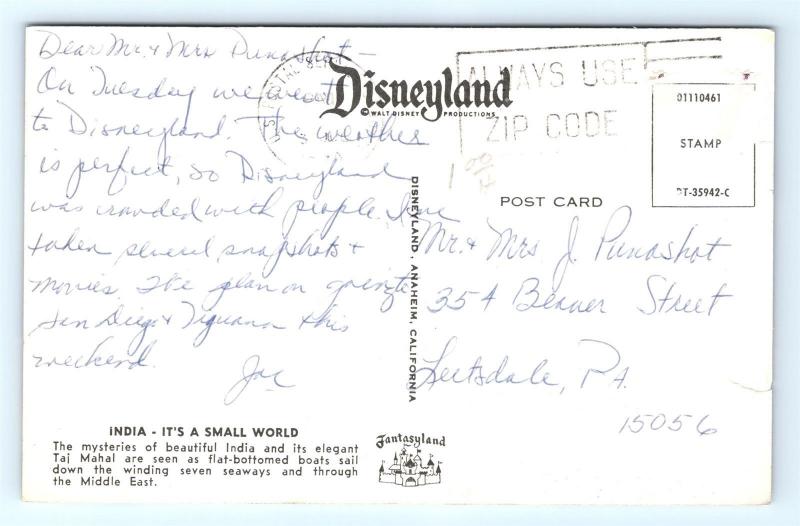 Dear Mr. & Mrs Punashot –
On Tuesday we went
to Disneyland. The weather
is perfect, so Disneyland
was crowded with people. I've
taken several snapshots &
movies. We plan on going to
San Diego & Tiguana this
weekend.
Joe
INDIA - IT'S A SMALL WORLD
The mysteries of beautiful India and its elegant
Taj Mahal are seen as flat-bottomed boats sail
down the winding seven seaways and through
the Middle East.
Disneyland
© WALT DISNEY PRODUCTIONS
DISNEYLAND, ANAHEIM, CALIFORNIA
ALWAYS USE
ZIP CODE
01110461
STAMP
DT-35942-C
1 00
POST CARD
Mr. & Mrs J. Punashot
354 Beaver Street
Leetsdale, PA.
15056
Fantasyland